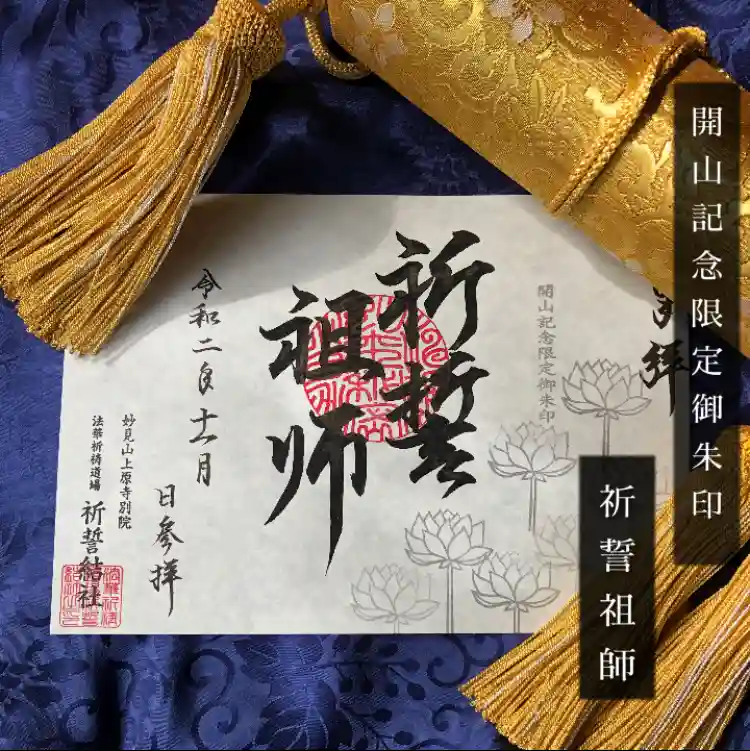 開山記念限定御朱印
祈誓祖師
拝
開山記念限定御朱印
祈誓
祖師
令和二年十一月
日參拝
妙見山上原寺別院
法華祈祷道場
祈誓結社